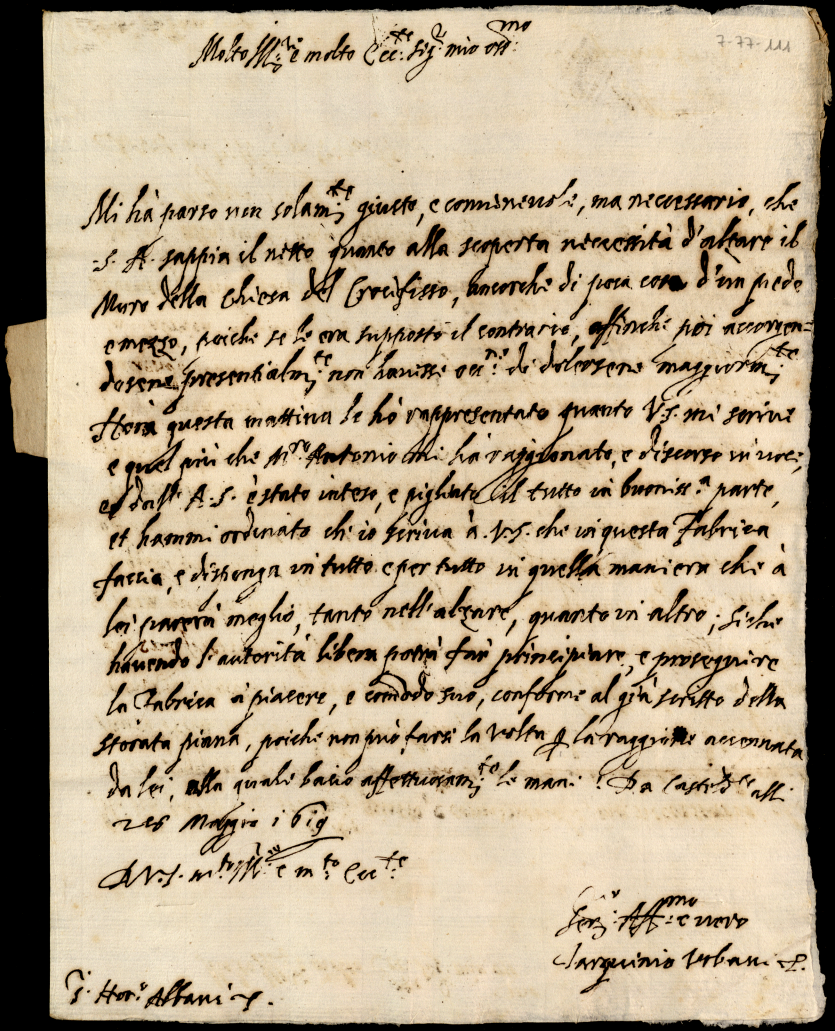 7-77-111
Molto Ill.re e molto Ecc.te Sig.r mio oss.mo
Mi hà parso non solam.te giusto, e convenevole, ma necessario, che
S. A. sappia il netto quanto alla scoperta necessità d'alzare il
Muro della Chiesa del Crocifisso, ancorche di poca cosa d'un piede
e mezzo, poiche se le era supposto il contrario, affinche poi accorgen=
dosene presentialm.te non havesse occ.ne di dolersene maggiorm.te
Hora questa mattina le hò rappresentato quanto V.S. mi scrive
e quel più che M.ro Antonio mi hà raggionato, e discorso in voce,
et dall' A. S. è stato inteso, e pigliato il tutto in buoniss.a parte,
et hammi ordinato che io scriva à V.S. che in questa Fabrica
faccia, e disponga in tutto e per tutto in quella maniera che à
lei piacerà meglio, tanto nell'alzare, quanto in altro; siche
havendo l'autorità libera potrà far principiare, e proseguire
la Fabrica à piacere, e comodo suo, conforme al già scritto della
storata piana, poiche non può farsi la volta p la raggione accennata
da lei, alla quale bacio affettuosam.te le mani. Da Casteld.te alli
28 Maggio 1619
D V.S. m.to Ill.re e m.to Ecc.te
Ser.r Aff.mo e vero
Tarquinio Urbani
S. Hor.o Albani